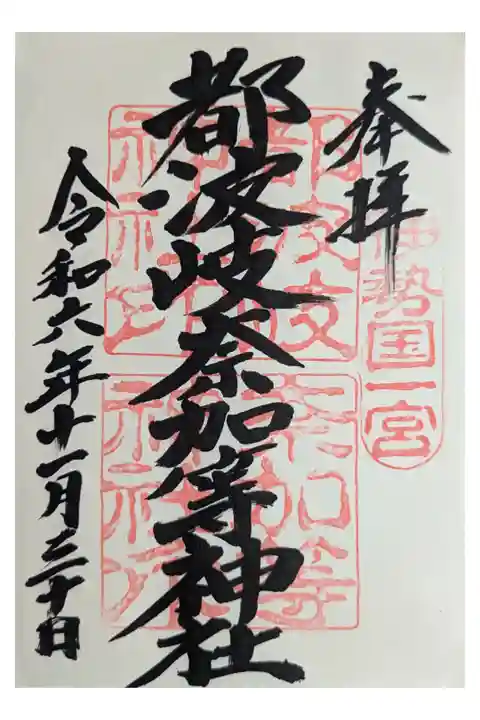 奉拝
伊勢国一宮
都波岐奈加等神社
令和六年十一月三十日